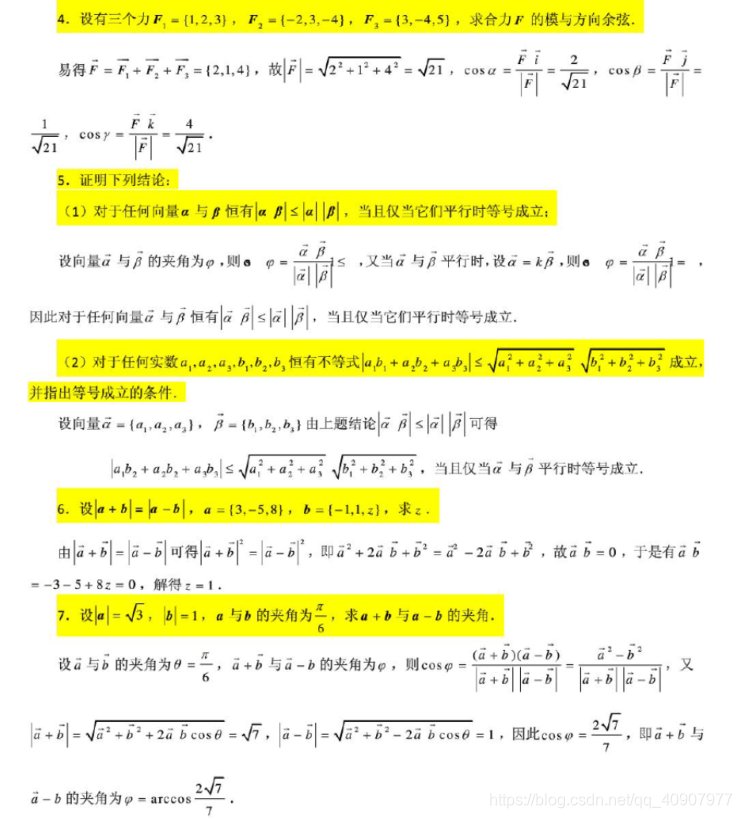 4. 设有三个力 F₁ = {1,2,3}, F₂ = {−2,3,−4}, F₃ = {3,−4,5}, 求合力 F 的模与方向余弦.
易得 F⃗ = F⃗₁ + F⃗₂ + F⃗₃ = {2,1,4}, 故|F⃗| = √(2² + 1² + 4²) = √21, cos α = (F⃗ i⃗)/|F⃗| = 2/√21, cos β = (F⃗ j⃗)/|F⃗| =
1/√21, cos γ = (F⃗ k⃗)/|F⃗| = 4/√21.
5. 证明下列结论:
(1) 对于任何向量 α 与 β 恒有|α β| ≤ |α| |β|, 当且仅当它们平行时等号成立;
设向量α⃗ 与 β⃗ 的夹角为φ, 则 φ = (α⃗ β⃗)/(|α⃗| |β⃗|) ≤ , 又当α⃗ 与 β⃗ 平行时, 设α⃗ = kβ⃗, 则 φ = (α⃗ β⃗)/(|α⃗| |β⃗|) = ,
因此对于任何向量α⃗ 与 β⃗ 恒有|α⃗ β⃗| ≤ |α⃗| |β⃗|, 当且仅当它们平行时等号成立.
(2) 对于任何实数 a₁,a₂,a₃,b₁,b₂,b₃ 恒有不等式|a₁b₁ + a₂b₂ + a₃b₃| ≤ √(a₁² + a₂² + a₃²) √(b₁² + b₂² + b₃²) 成立,
并指出等号成立的条件.
设向量α⃗ = {a₁,a₂,a₃}, β⃗ = {b₁,b₂,b₃} 由上题结论|α⃗ β⃗| ≤ |α⃗| |β⃗| 可得
|a₁b₂ + a₂b₂ + a₃b₃| ≤ √(a₁² + a₂² + a₃²) √(b₁² + b₂² + b₃²), 当且仅当α⃗ 与 β⃗ 平行时等号成立.
6. 设|a + b| = |a − b|, a = {3,−5,8}, b = {−1,1,z}, 求 z.
由|a⃗ + b⃗| = |a⃗ − b⃗| 可得|a⃗ + b⃗|² = |a⃗ − b⃗|², 即 a⃗² + 2a⃗ b⃗ + b⃗² = a⃗² − 2a⃗ b⃗ + b⃗², 故a⃗ b⃗ = 0, 于是有a⃗ b⃗
= −3 − 5 + 8z = 0, 解得 z = 1.
7. 设|a| = √3, |b| = 1, a 与 b 的夹角为 π/6, 求 a + b 与 a − b 的夹角.
设a⃗ 与 b⃗ 的夹角为θ = π/6, a⃗ + b⃗ 与 a⃗ − b 的夹角为φ, 则cos φ = ((a⃗ + b⃗)(a⃗ − b⃗))/(|a⃗ + b⃗| |a⃗ − b⃗|) = (a⃗² − b⃗²)/(|a⃗ + b⃗| |a⃗ − b⃗|), 又
|a⃗ + b⃗| = √(a⃗² + b⃗² + 2a⃗ b⃗ cos θ) = √7, |a⃗ − b⃗| = √(a⃗² + b⃗² − 2a⃗ b⃗ cos θ) = 1, 因此cos φ = 2√7/7, 即a⃗ + b⃗ 与
a⃗ − b 的夹角为φ = arccos 2√7/7.
https://blog.csdn.net/qq_40907977